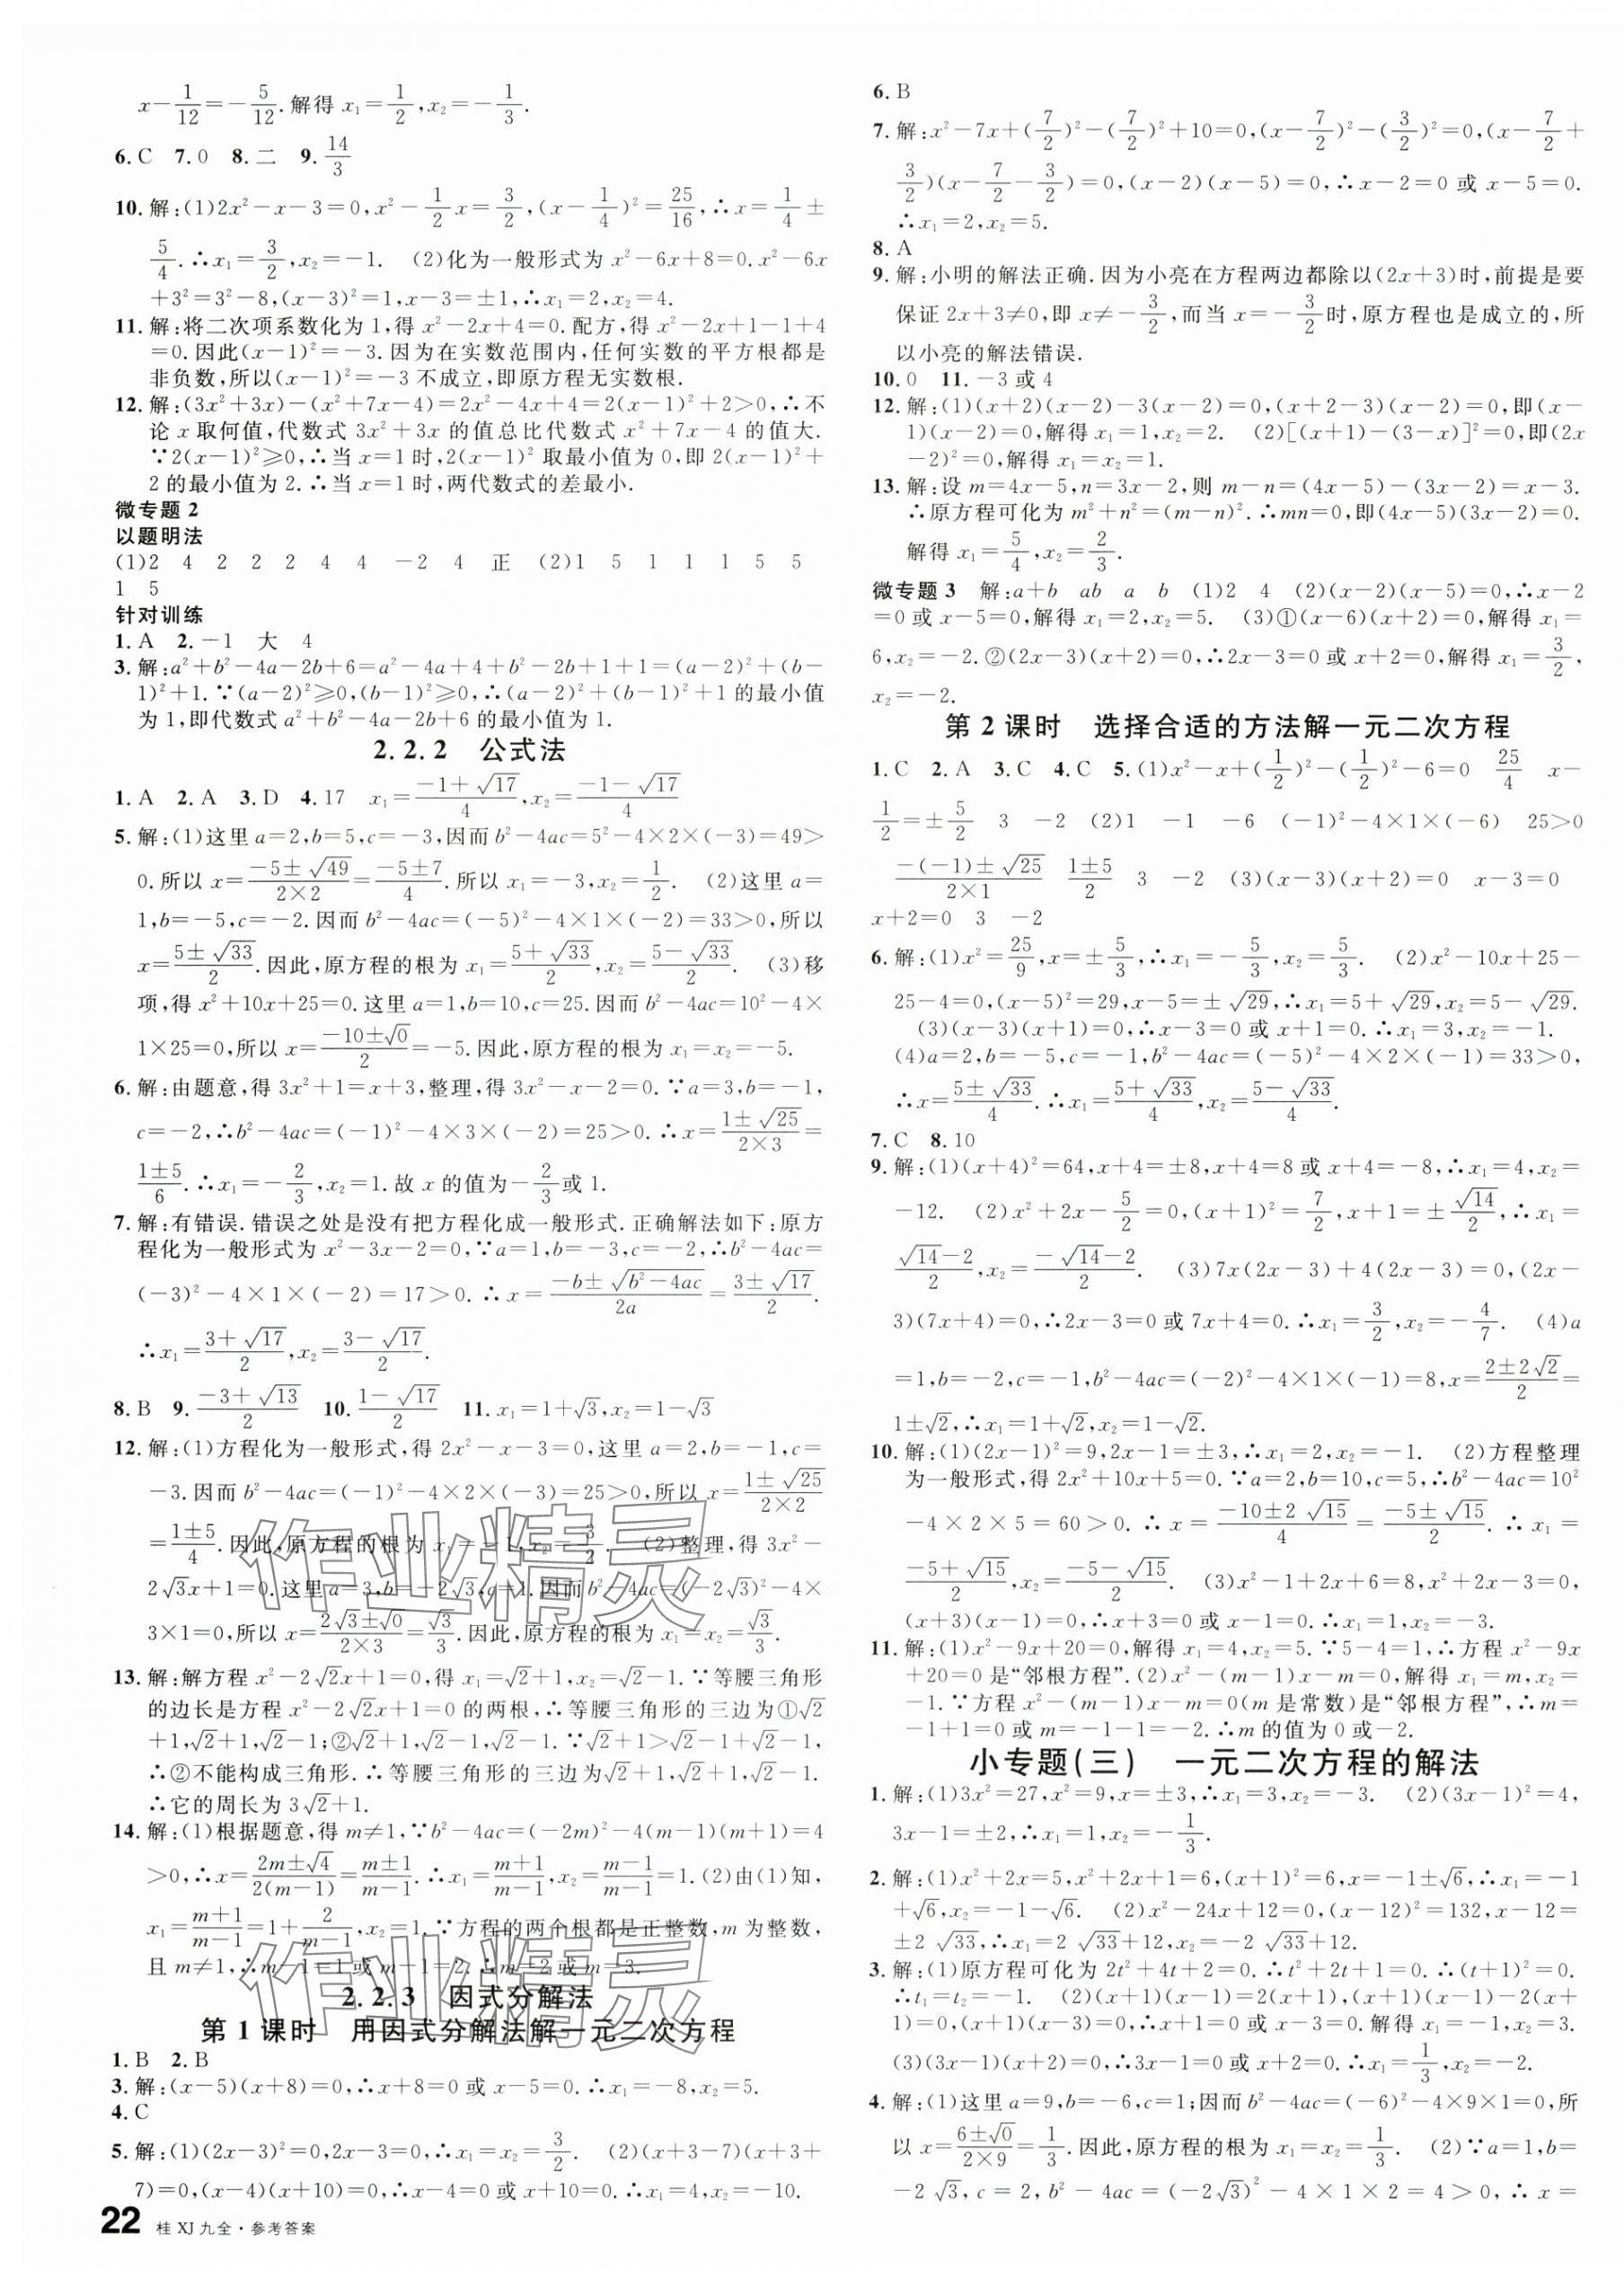 x－1/12＝－5/12.解得 x₁＝1/2,x₂＝－1/3.
6.C 7.0 8.二 9.14/3
10.解:(1)2x²－x－3＝0,x²－1/2x＝3/2,(x－1/4)²＝25/16,∴x＝1/4±
5/4.∴x₁＝3/2,x₂＝－1. (2)化为一般形式为 x²－6x＋8＝0.x²－6x
＋3²＝3²－8,(x－3)²＝1,x－3＝±1,∴x₁＝2,x₂＝4.
11.解:将二次项系数化为 1,得 x²－2x＋4＝0.配方,得 x²－2x＋1－1＋4
＝0.因此(x－1)²＝－3.因为在实数范围内,任何实数的平方根都是
非负数,所以(x－1)²＝－3 不成立,即原方程无实数根.
12.解:(3x²＋3x)－(x²＋7x－4)＝2x²－4x＋4＝2(x－1)²＋2>0,∴不
论 x 取何值,代数式 3x²＋3x 的值总比代数式 x²＋7x－4 的值大.
∵2(x－1)²≥0,∴当 x＝1 时,2(x－1)² 取最小值为 0,即 2(x－1)²＋
2 的最小值为 2.∴当 x＝1 时,两代数式的差最小.
微专题 2
以题明法
(1)2 4 2 2 2 4 4 －2 4 正 (2)1 5 1 1 1 5 5
1 5
针对训练
1.A 2.－1 大 4
3.解:a²＋b²－4a－2b＋6＝a²－4a＋4＋b²－2b＋1＋1＝(a－2)²＋(b－
1)²＋1.∵(a－2)²≥0,(b－1)²≥0,∴(a－2)²＋(b－1)²＋1 的最小值
为 1,即代数式 a²＋b²－4a－2b＋6 的最小值为 1.
2.2.2 公式法
1.A 2.A 3.D 4.17 x₁＝(－1＋√17)/4,x₂＝(－1－√17)/4
5.解:(1)这里 a＝2,b＝5,c＝－3,因而 b²－4ac＝5²－4×2×(－3)＝49>
0.所以 x＝(－5±√49)/(2×2)＝(－5±7)/4.所以 x₁＝－3,x₂＝1/2. (2)这里 a＝
1,b＝－5,c＝－2.因而 b²－4ac＝(－5)²－4×1×(－2)＝33>0,所以
x＝(5±√33)/2.因此,原方程的根为 x₁＝(5＋√33)/2,x₂＝(5－√33)/2. (3)移
项,得 x²＋10x＋25＝0.这里 a＝1,b＝10,c＝25.因而 b²－4ac＝10²－4×
1×25＝0,所以 x＝(－10±√0)/2＝－5.因此,原方程的根为 x₁＝x₂＝－5.
6.解:由题意,得 3x²＋1＝x＋3,整理,得 3x²－x－2＝0.∵a＝3,b＝－1,
c＝－2,∴b²－4ac＝(－1)²－4×3×(－2)＝25>0.∴x＝(1±√25)/(2×3)＝
(1±5)/6.∴x₁＝－2/3,x₂＝1.故 x 的值为－2/3或 1.
7.解:有错误.错误之处是没有把方程化成一般形式.正确解法如下:原方
程化为一般形式为 x²－3x－2＝0,∵a＝1,b＝－3,c＝－2,∴b²－4ac＝
(－3)²－4×1×(－2)＝17>0.∴x＝(－b±√(b²－4ac))/2a＝(3±√17)/2.
∴x₁＝(3＋√17)/2,x₂＝(3－√17)/2.
8.B 9.(－3＋√13)/2 10.(1－√17)/2 11.x₁＝1＋√3,x₂＝1－√3
12.解:(1)方程化为一般形式,得 2x²－x－3＝0,这里 a＝2,b＝－1,c＝
－3.因而 b²－4ac＝(－1)²－4×2×(－3)＝25>0,所以 x＝(1±√25)/(2×2)
＝(1±5)/4.因此,原方程的根为 x₁＝－1,x₂＝3/2. (2)整理,得 3x²－
2√3x＋1＝0.这里 a＝3,b＝－2√3,c＝1.因而 b²－4ac＝(－2√3)²－4×
3×1＝0,所以 x＝(2√3±√0)/(2×3)＝√3/3.因此,原方程的根为 x₁＝x₂＝√3/3.
13.解:解方程 x²－2√2x＋1＝0,得 x₁＝√2＋1,x₂＝√2－1.∵等腰三角形
的边长是方程 x²－2√2x＋1＝0 的两根,∴等腰三角形的三边为①√2
＋1,√2＋1,√2－1;②√2＋1,√2－1,√2－1.∵√2＋1>√2－1＋√2－1,
∴②不能构成三角形.∴等腰三角形的三边为√2＋1,√2＋1,√2－1.
∴它的周长为 3√2＋1.
14.解:(1)根据题意,得 m≠1,∵b²－4ac＝(－2m)²－4(m－1)(m＋1)＝4
>0,∴x＝(2m±√4)/(2(m－1))＝(m±1)/(m－1).∴x₁＝(m＋1)/(m－1),x₂＝(m－1)/(m－1)＝1.(2)由(1)知,
x₁＝(m＋1)/(m－1)＝1＋2/(m－1),x₂＝1.∵方程的两个根都是正整数,m 为整数,
且 m≠1,∴m－1＝1 或 m－1＝2.∴m＝2 或 m＝3.
2.2.3 因式分解法
第 1 课时 用因式分解法解一元二次方程
1.B 2.B
3.解:(x－5)(x＋8)＝0,∴x＋8＝0 或 x－5＝0.∴x₁＝－8,x₂＝5.
4.C
5.解:(1)(2x－3)²＝0,2x－3＝0,∴x₁＝x₂＝3/2. (2)(x＋3－7)(x＋3＋
7)＝0,(x－4)(x＋10)＝0,∴x－4＝0 或 x＋10＝0.∴x₁＝4,x₂＝－10.
22 桂 XJ 九全·参考答案
6.B
7.解:x²－7x＋(7/2)²－(7/2)²＋10＝0,(x－7/2)²－(3/2)²＝0,(x－7/2＋
3/2)(x－7/2－3/2)＝0,(x－2)(x－5)＝0,∴x－2＝0 或 x－5＝0.
∴x₁＝2,x₂＝5.
8.A
9.解:小明的解法正确.因为小亮在方程两边都除以(2x＋3)时,前提是要
保证 2x＋3≠0,即 x≠－3/2,而当 x＝－3/2时,原方程也是成立的,所
以小亮的解法错误.
10.0 11.－3 或 4
12.解:(1)(x＋2)(x－2)－3(x－2)＝0,(x＋2－3)(x－2)＝0,即(x－
1)(x－2)＝0,解得 x₁＝1,x₂＝2. (2)[(x＋1)－(3－x)]²＝0,即(2x
－2)²＝0,解得 x₁＝x₂＝1.
13.解:设 m＝4x－5,n＝3x－2,则 m－n＝(4x－5)－(3x－2)＝x－3.
∴原方程可化为 m²＋n²＝(m－n)².∴mn＝0,即(4x－5)(3x－2)＝0.
解得 x₁＝5/4,x₂＝2/3.
微专题 3 解:a＋b ab a b (1)2 4 (2)(x－2)(x－5)＝0,∴x－2
＝0 或 x－5＝0,解得 x₁＝2,x₂＝5. (3)①(x－6)(x＋2)＝0,解得 x₁＝
6,x₂＝－2.②(2x－3)(x＋2)＝0,∴2x－3＝0 或 x＋2＝0,解得 x₁＝3/2,
x₂＝－2.
第 2 课时 选择合适的方法解一元二次方程
1.C 2.A 3.C 4.C 5.(1)x²－x＋(1/2)²－(1/2)²－6＝0 25/4 x－
1/2＝±5/2 3 －2 (2)1 －1 －6 (－1)²－4×1×(－6) 25>0
(－(－1)±√25)/(2×1) (1±5)/2 3 －2 (3)(x－3)(x＋2)＝0 x－3＝0
x＋2＝0 3 －2
6.解:(1)x²＝25/9,x＝±5/3,∴x₁＝－5/3,x₂＝5/3. (2)x²－10x＋25－
25－4＝0,(x－5)²＝29,x－5＝±√29,∴x₁＝5＋√29,x₂＝5－√29.
(3)(x－3)(x＋1)＝0,∴x－3＝0 或 x＋1＝0.∴x₁＝3,x₂＝－1.
(4)a＝2,b＝－5,c＝－1,b²－4ac＝(－5)²－4×2×(－1)＝33>0,
∴x＝(5±√33)/4.∴x₁＝(5＋√33)/4,x₂＝(5－√33)/4.
7.C 8.10
9.解:(1)(x＋4)²＝64,x＋4＝±8,x＋4＝8 或 x＋4＝－8,∴x₁＝4,x₂＝
－12. (2)x²＋2x－5/2＝0,(x＋1)²＝7/2,x＋1＝±√14/2,∴x₁＝
(√14－2)/2,x₂＝(－√14－2)/2. (3)7x(2x－3)＋4(2x－3)＝0,(2x－
3)(7x＋4)＝0,∴2x－3＝0 或 7x＋4＝0.∴x₁＝3/2,x₂＝－4/7. (4)a
＝1,b＝－2,c＝－1,b²－4ac＝(－2)²－4×1×(－1)＝8,x＝(2±2√2)/2＝
1±√2,∴x₁＝1＋√2,x₂＝1－√2.
10.解:(1)(2x－1)²＝9,2x－1＝±3,∴x₁＝2,x₂＝－1. (2)方程整理
为一般形式,得 2x²＋10x＋5＝0.∵a＝2,b＝10,c＝5,∴b²－4ac＝10²
－4×2×5＝60>0.∴x＝(－10±2√15)/4＝(－5±√15)/2.∴x₁＝
(－5＋√15)/2,x₂＝(－5－√15)/2. (3)x²－1＋2x＋6＝8,x²＋2x－3＝0,
(x＋3)(x－1)＝0,∴x＋3＝0 或 x－1＝0.∴x₁＝1,x₂＝－3.
11.解:(1)x²－9x＋20＝0,解得 x₁＝4,x₂＝5.∵5－4＝1,∴方程 x²－9x
＋20＝0 是“邻根方程”.(2)x²－(m－1)x－m＝0,解得 x₁＝m,x₂＝
－1.∵方程 x²－(m－1)x－m＝0(m 是常数)是“邻根方程”,∴m＝
－1＋1＝0 或 m＝－1－1＝－2.∴m 的值为 0 或－2.
小专题(三) 一元二次方程的解法
1.解:(1)3x²＝27,x²＝9,x＝±3,∴x₁＝3,x₂＝－3. (2)(3x－1)²＝4,
3x－1＝±2,∴x₁＝1,x₂＝－1/3.
2.解:(1)x²＋2x＝5,x²＋2x＋1＝6,(x＋1)²＝6,x＝－1±√6,∴x₁＝－1
＋√6,x₂＝－1－√6. (2)x²－24x＋12＝0,(x－12)²＝132,x－12＝
±2√33,∴x₁＝2√33＋12,x₂＝－2√33＋12.
3.解:(1)原方程可化为 2t²＋4t＋2＝0.∴t²＋2t＋1＝0.∴(t＋1)²＝0.
∴t₁＝t₂＝－1. (2)(x＋1)(x－1)＝2(x＋1),(x＋1)(x－1)－2(x＋
1)＝0,(x＋1)(x－3)＝0,∴x＋1＝0 或 x－3＝0.解得 x₁＝－1,x₂＝3.
(3)(3x－1)(x＋2)＝0,∴3x－1＝0 或 x＋2＝0.∴x₁＝1/3,x₂＝－2.
4.解:(1)这里 a＝9,b＝－6,c＝1;因而 b²－4ac＝(－6)²－4×9×1＝0,所
以 x＝(6±√0)/(2×9)＝1/3.因此,原方程的根为 x₁＝x₂＝1/3. (2)∵a＝1,b＝
－2√3,c＝2,b²－4ac＝(－2√3)²－4×1×2＝4>0,∴x＝
作业精灵
作业精灵